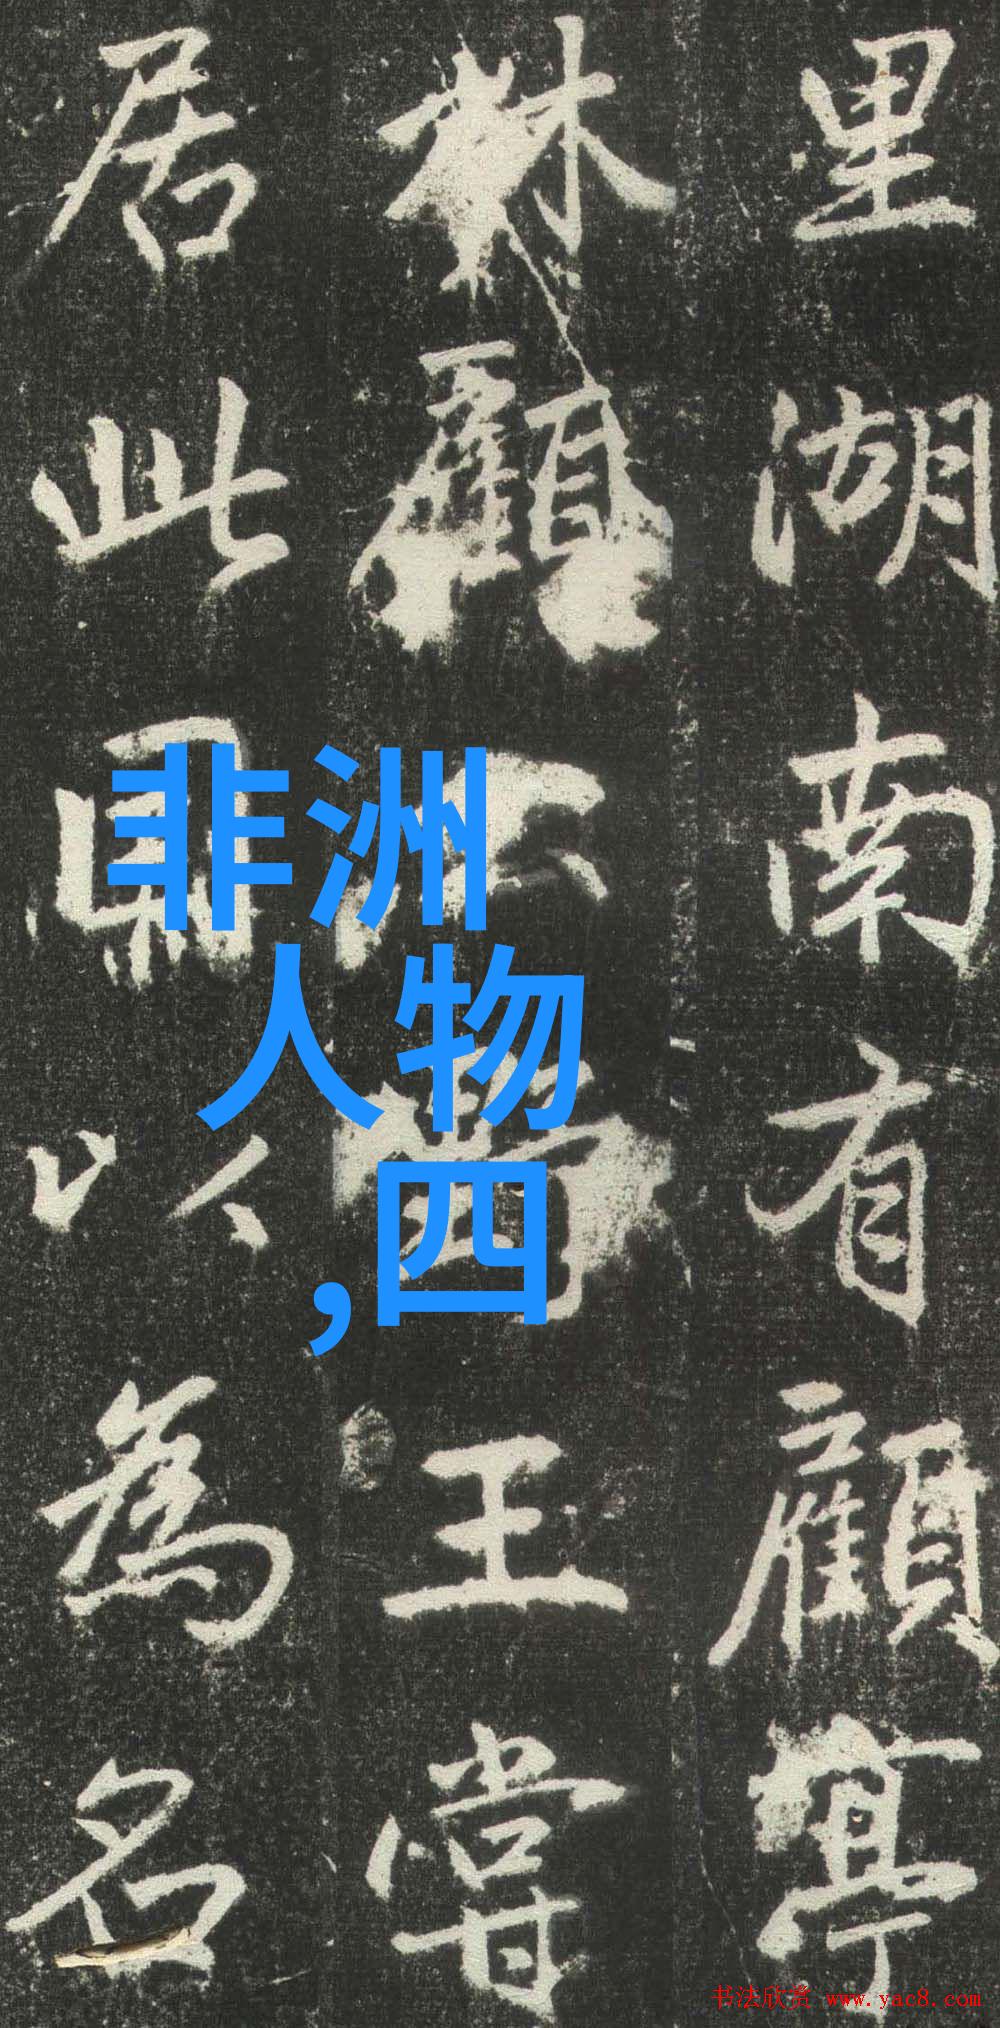 里湖南有顧亭
林顧王嘗
居此以為名
非洲
人物
,四
书法欣赏 www.yac8.com